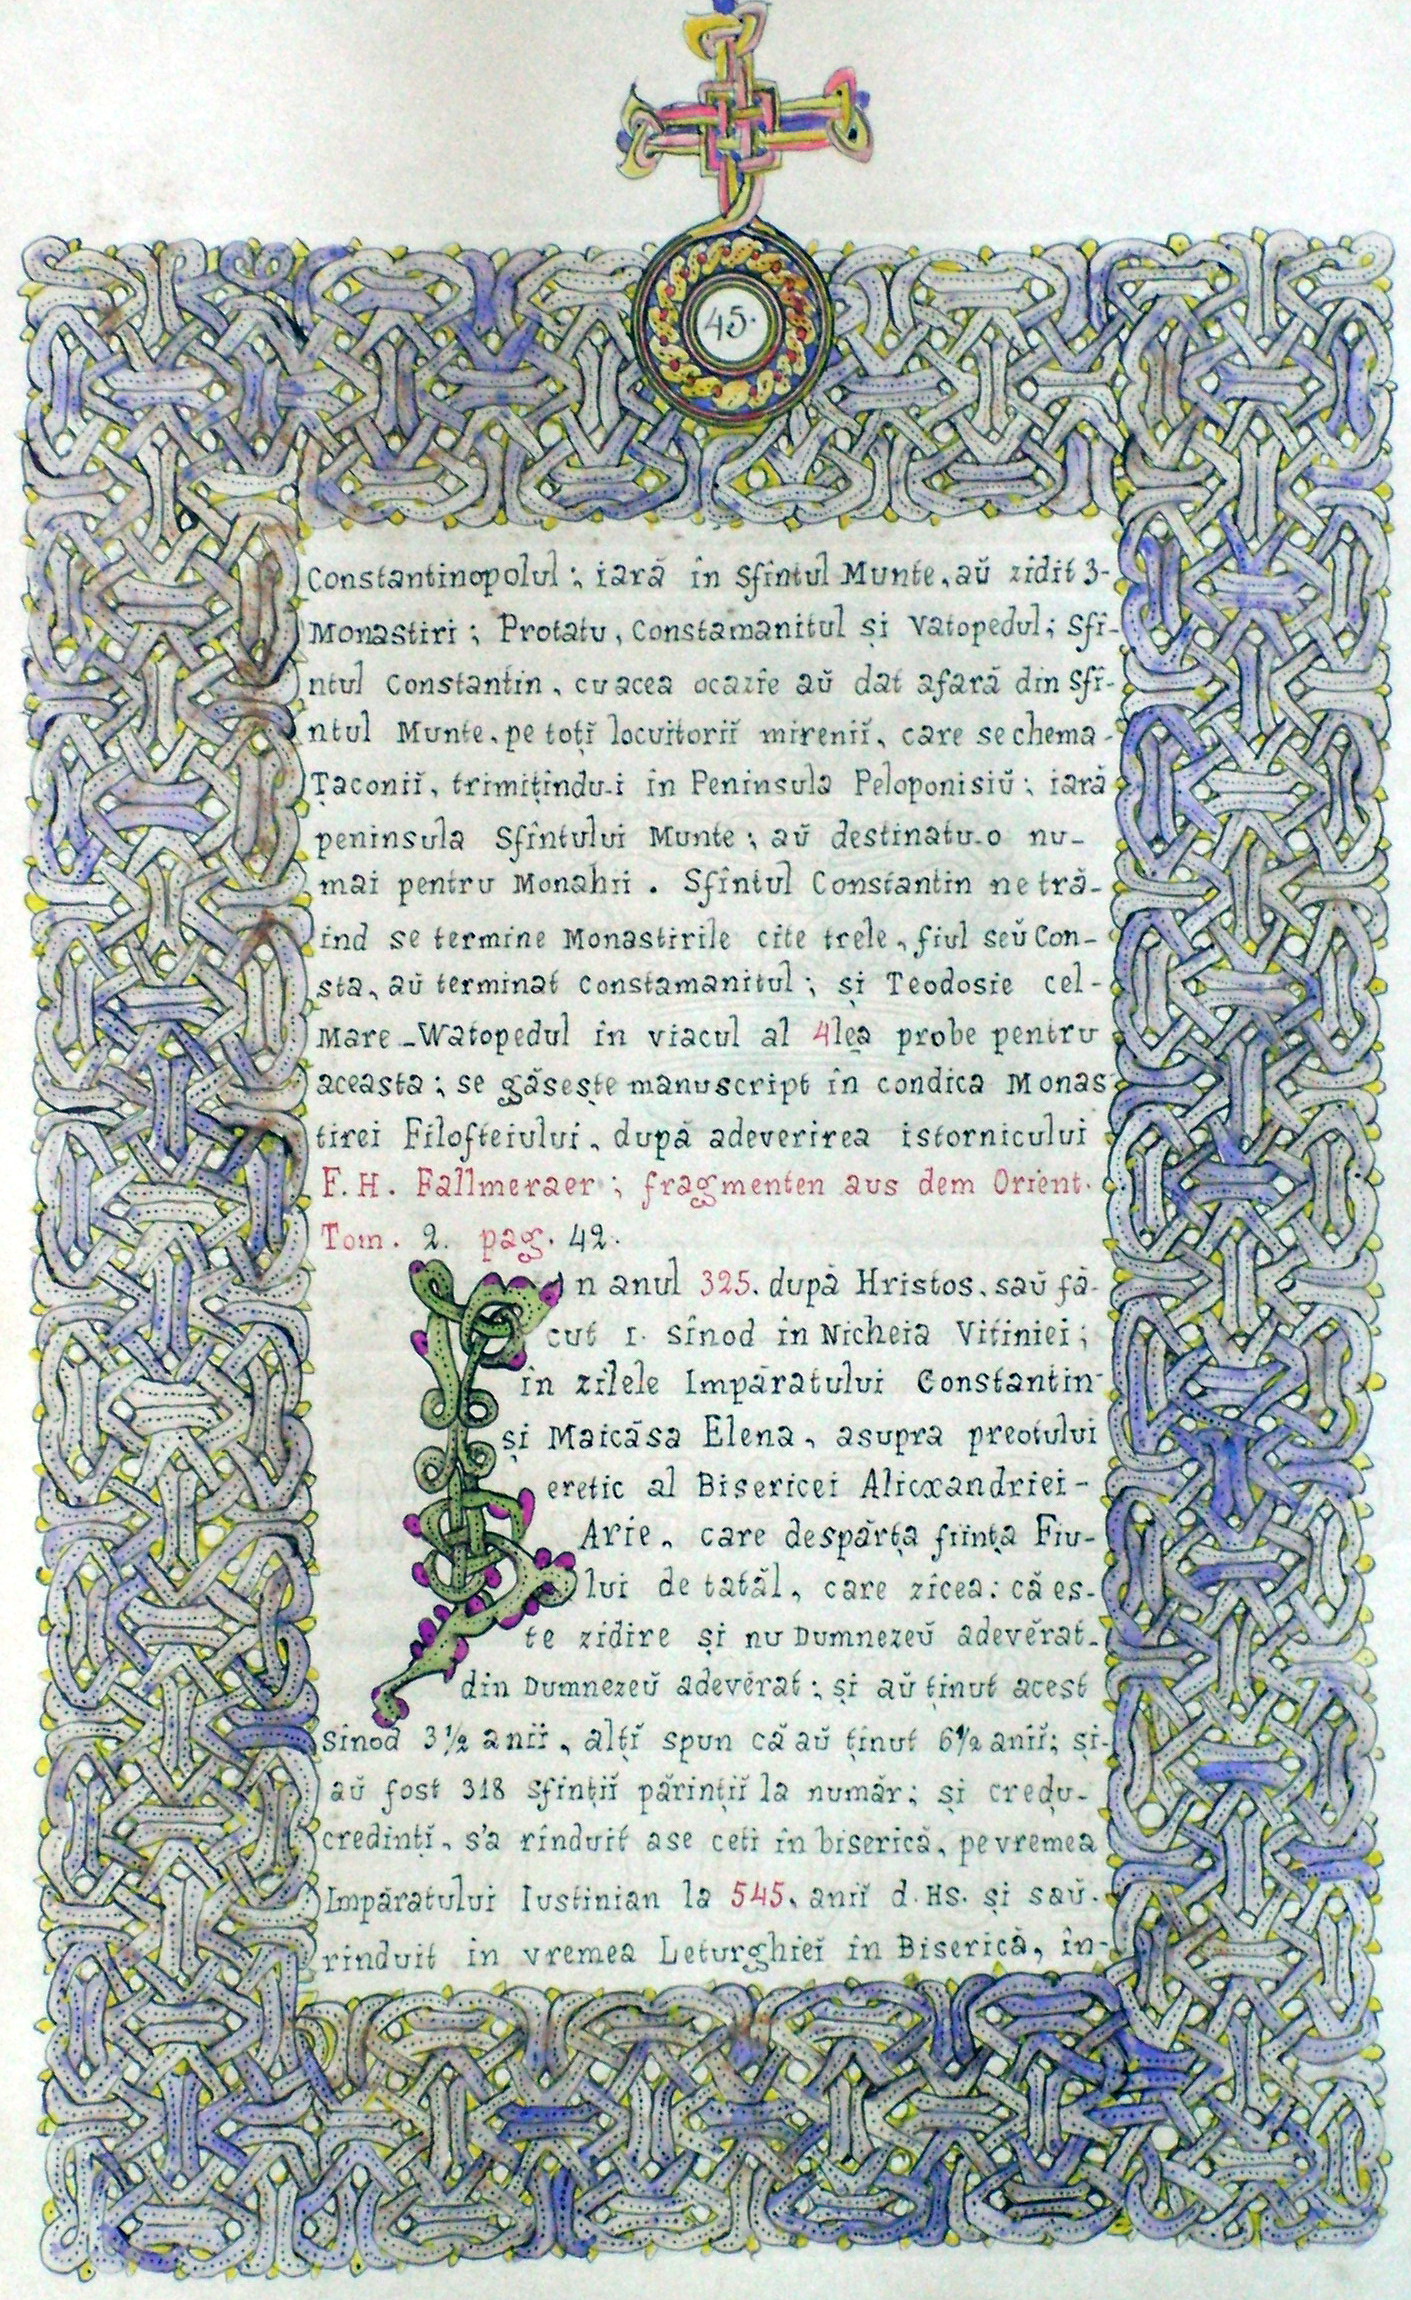 45.
Constantinopolul; iară în Sfîntul Munte, aŭ zidit 3-
Monastiri; Protatu, Constamanitul și Vatopedul; Sfî-
ntul Constantin, cu acea ocazie aŭ dat afară din Sfî-
ntul Munte, pe toțĭ locuitoriĭ mireniĭ, care se chema-
Țaconiĭ, trimițîndu-i în Peninsula Peloponisiŭ; iară
peninsula Sfîntului Munte; aŭ destinatu-o nu-
mai pentru Monahii. Sfîntul Constantin ne tră-
ind se termine Monastirile cite trele, fiul seŭ Con-
sta, aŭ terminat Constamanitul; și Teodosie cel-
Mare-Watopedul în viacul al 4lea probe pentru
aceasta; se găsește manuscript în condica Monas
tirei Filofteiului, după adeverirea istornicului
F. H. Fallmeraer; fragmenten aus dem Orient.
Tom. 2. pag. 42.
În anul 325. după Hristos, saŭ fă-
cut I. Sînod în Nicheia Vitiniei;
în zilele Împăratului Constantin-
și Maicăsa Elena, asupra preotului
eretic al Bisericei Alicxandriei-
Arie, care despărța ființa Fiu-
lui de tatăl, care zicea: că es-
te zidire și nu Dumnezeŭ adevĕrat-
din Dumnezeŭ adevĕrat; și aŭ ținut acest
Sinod 3½ aniĭ, alțĭ spun că aŭ ținut 6½ aniĭ; și-
aŭ fost 318 sfințiĭ părințiĭ la număr; și credu-
credințĭ, s'a rînduit ase ceti în biserică, pe vremea
Împăratului Iustinian la 545, aniĭ d. Hs. și saŭ-
rînduit in vremea Leturghieĭ în Biserică, în-